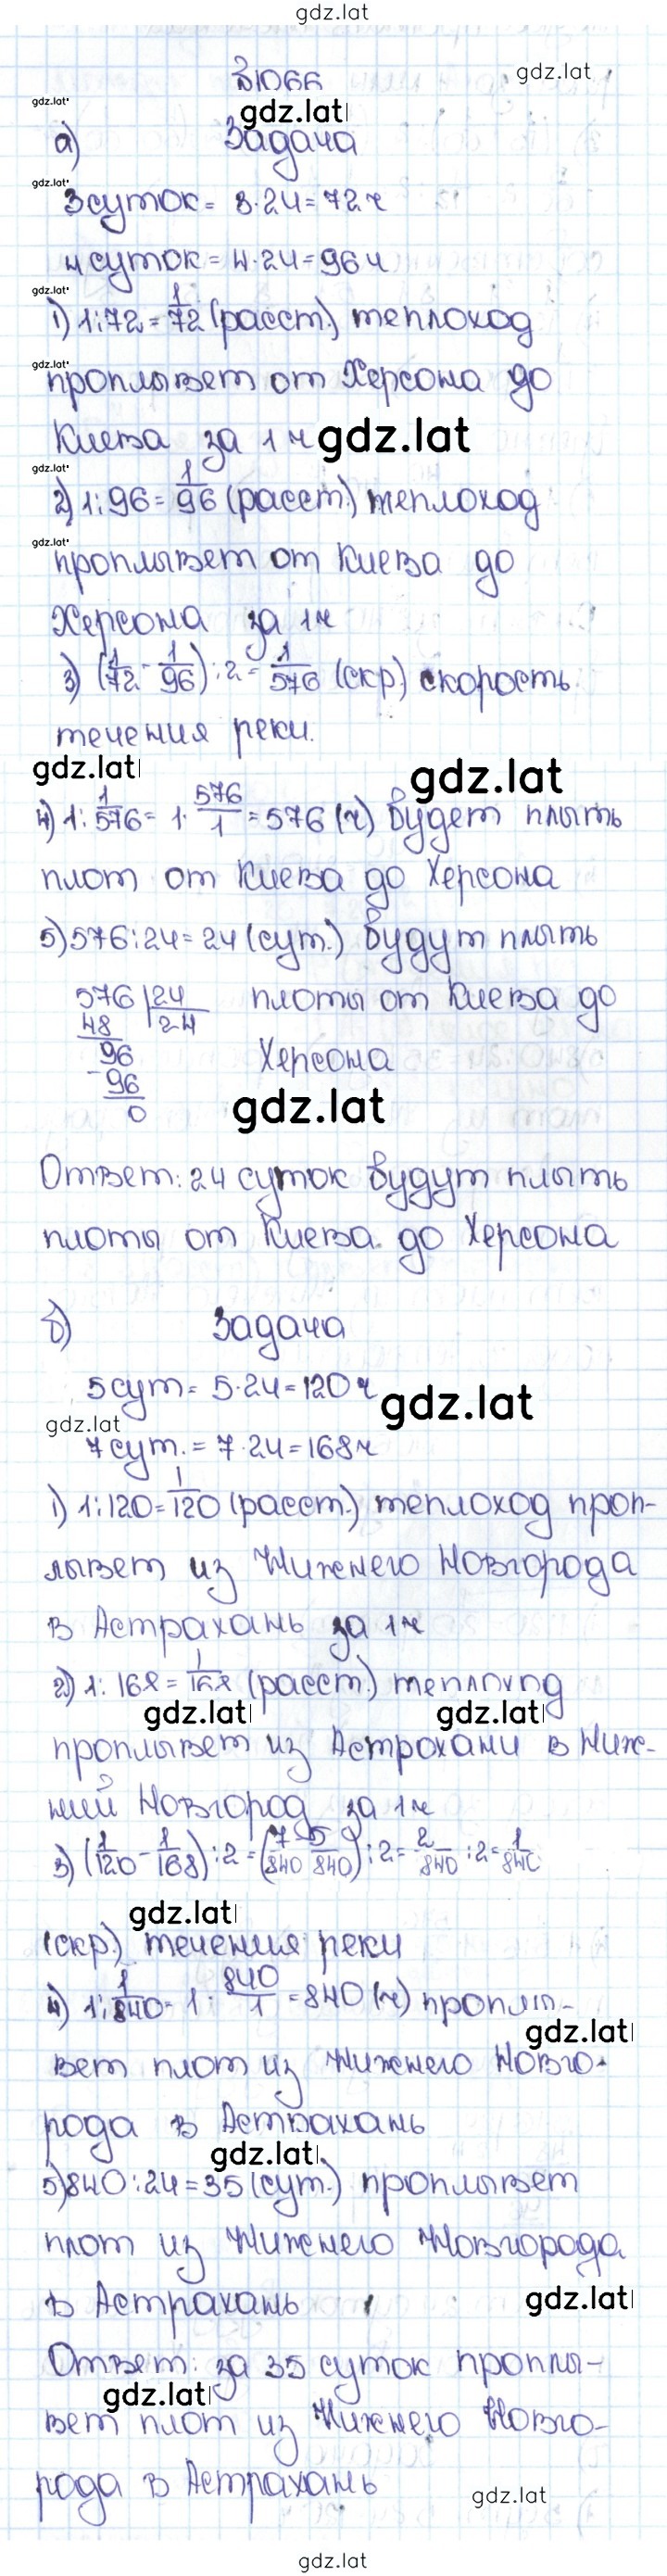 gdz.lat
№1066
gdz.lat
gdz.lat
gdz.lat
а) Задача
gdz.lat
3 суток = 3·24 = 72 ч
4 суток = 4·24 = 96 ч
gdz.lat
1) 1:72 = 1/72 (расст.) теплоход
gdz.lat
проплывет от Херсона до
Киева за 1 ч gdz.lat
gdz.lat
2) 1:96 = 1/96 (расст.) теплоход
gdz.lat
проплывет от Киева до
Херсона за 1 ч
3) (1/72 - 1/96) : 2 = 1/576 (скр.) скорость
течения реки.
gdz.lat
gdz.lat
4) 1: 1/576 = 1· 576/1 = 576 (ч) будет плыть
плот от Киева до Херсона
5) 576:24 = 24 (сут.) будут плыть
576 | 24 плоты от Киева до
48 24
96 Херсона
- 96
0 gdz.lat
Ответ: 24 суток будут плыть
плоты от Киева до Херсона
б) Задача
5 сут = 5·24 = 120 ч
gdz.lat
gdz.lat
7 сут. = 7·24 = 168 ч
1) 1:120 = 1/120 (расст.) теплоход проп-
лывет из Нижнего Новгорода
в Астрахань за 1 ч
2) 1:168 = 1/168 (расст.) теплоход
gdz.lat gdz.lat
проплывет из Астрохани в Ниж-
ний Новгород за 1 ч
3) (1/120 - 1/168) : 2 = (7/840 - 5/840) : 2 = 2/840 : 2 = 1/840
gdz.lat
(скр.) течения реки
4) 1: 1/840 = 1· 840/1 = 840 (ч) проплы-
gdz.lat
вет плот из Нижнего Новго-
рода в Астрахань
gdz.lat
5) 840:24 = 35 (сут.) проплывет
плот из Нижнего Новгорода
в Астрахань gdz.lat
Ответ: за 35 суток проплы-
gdz.lat
вет плот из Нижнего Новго-
рода в Астрахань
gdz.lat
gdz.lat